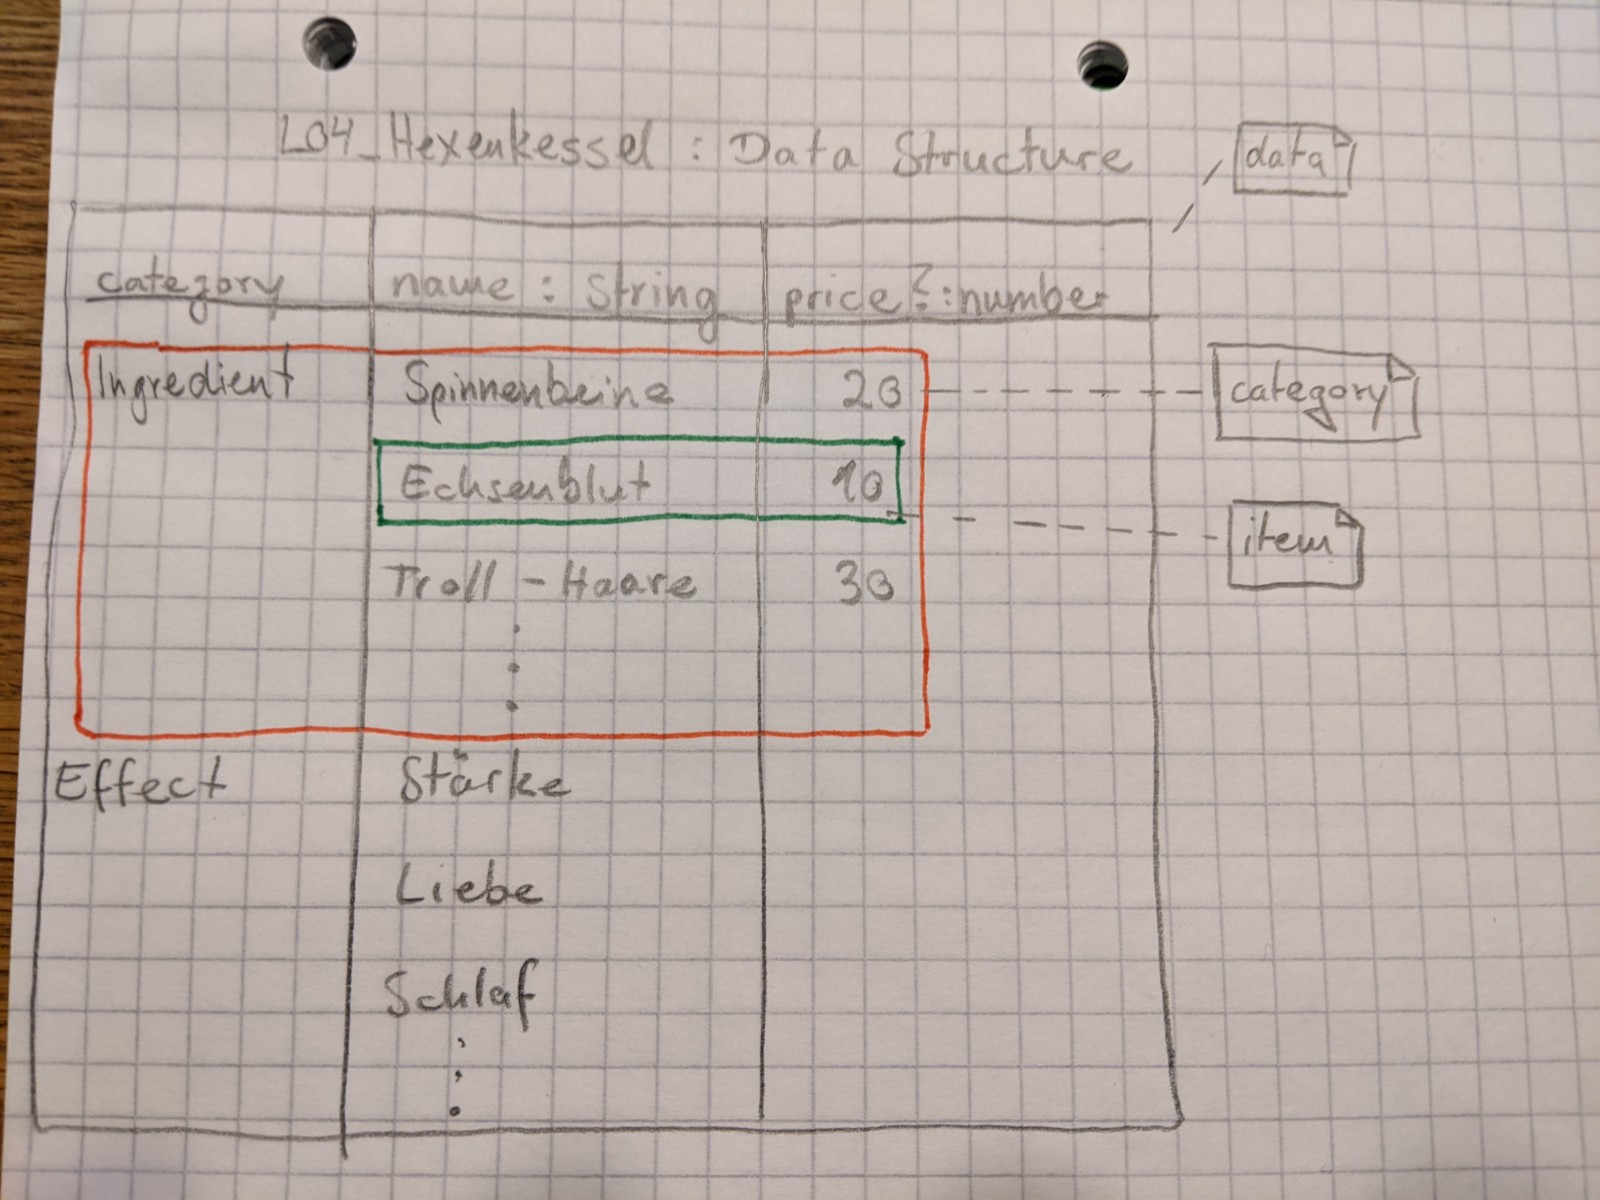 L04_Hexenkessel : Data Structure
data
category name : string price?:number
Ingredient Spinnenbeine 20
category
Echsenblut 10
item
Troll - Haare 30
Effect Stärke
Liebe
Schlaf